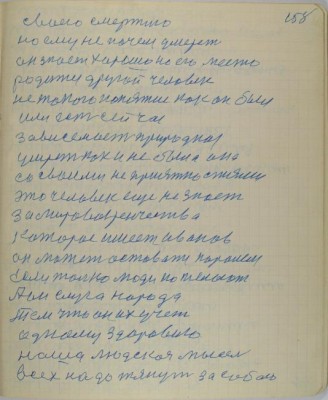 158
своего смертию
но ему не почем умереть
он знает хорошо на его место
родится другой человек
не такого понятие как он был
или есть сейчас
зависемость природная
умрет как и не была она
со своими не приятностями
это человек еще не знает
За мировозренчества
которое имеет иванов
он может оставаться порашеи
если только люди пожелают
А он слуга народа
Тем что он их учет
одному здоровию
наша людская мысел
всех надо тянут за собою